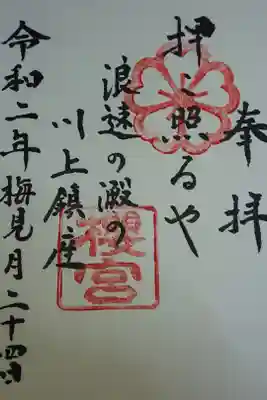 奉拝
押し照るや
浪速の澱の
川上鎮座
櫻宮
令和二年梅見月二十四日